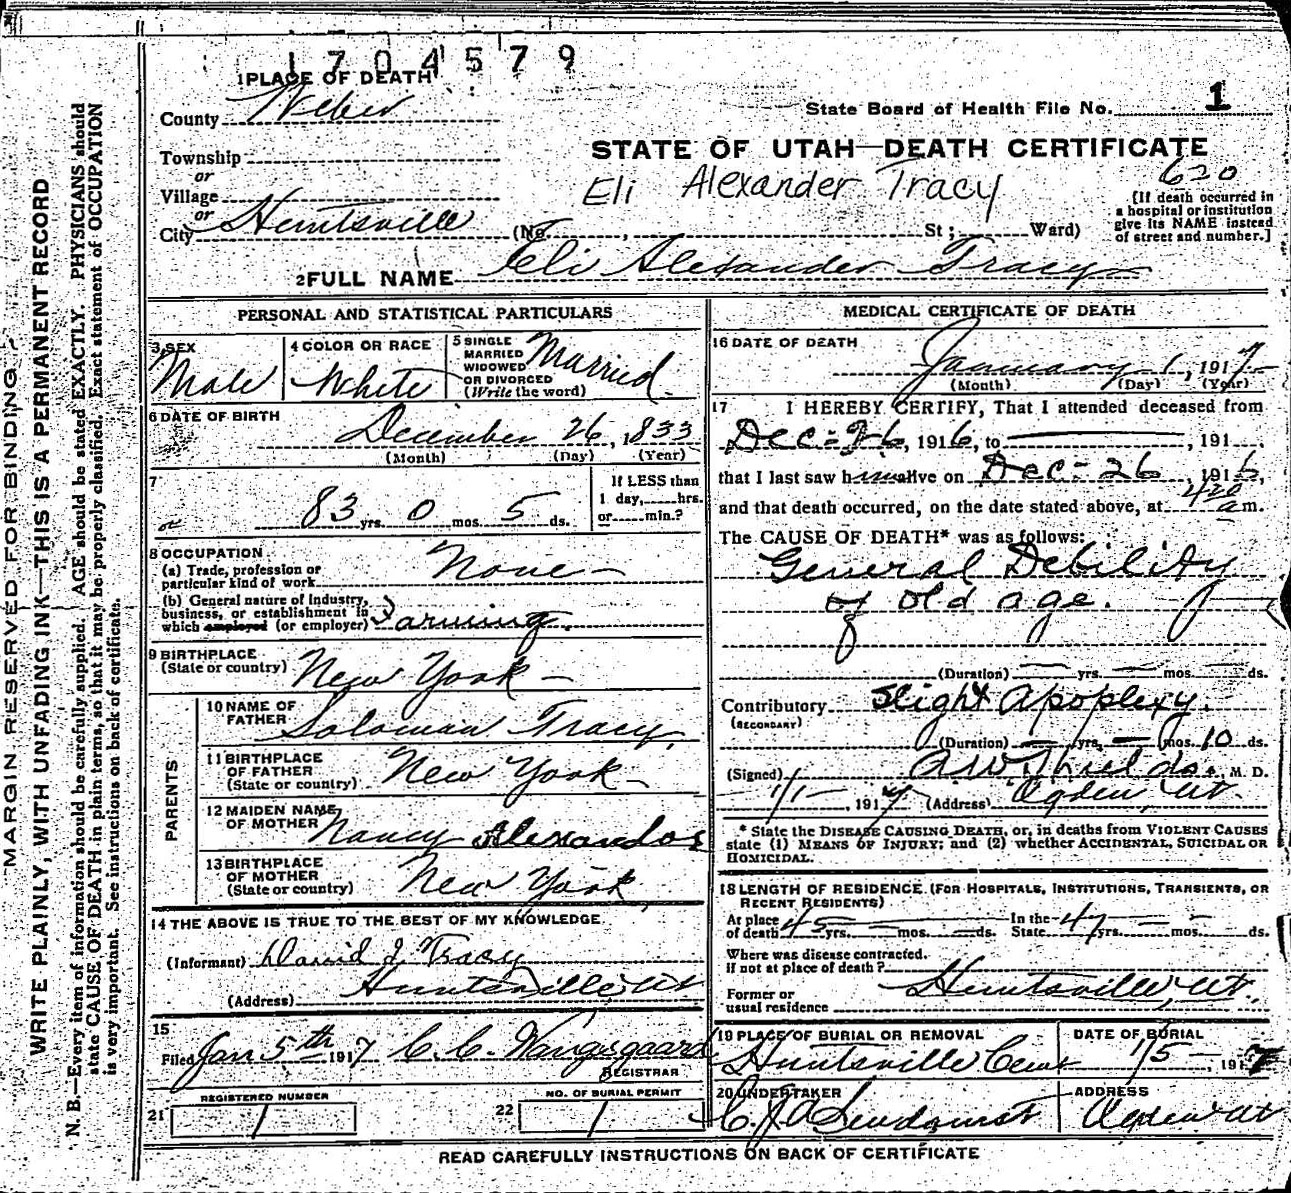 1704579
1 PLACE OF DEATH
County Weber
State Board of Health File No. 1
Township
or
Village
or
City Huntsville (No. , St ; Ward)
STATE OF UTAH—DEATH CERTIFICATE
620
Eli Alexander Tracy
[If death occurred in
a hospital or institution
give its NAME instead
of street and number.]
2 FULL NAME Eli Alexander Tracy
PERSONAL AND STATISTICAL PARTICULARS
3 SEX
Male
4 COLOR OR RACE
White
5 SINGLE
MARRIED
WIDOWED
OR DIVORCED
(Write the word)
Married
6 DATE OF BIRTH
December 26, 1833
(Month) (Day) (Year)
7
83 yrs. 0 mos. 5 ds.
If LESS than
1 day, hrs.
or min.?
or
8 OCCUPATION
(a) Trade, profession or
particular kind of work
None
(b) General nature of Industry,
business, or establishment in
which employed (or employer) Farming.
9 BIRTHPLACE
(State or country) New York
PARENTS
10 NAME OF
FATHER Soloman Tracy
11 BIRTHPLACE
OF FATHER
(State or country) New York
12 MAIDEN NAME
OF MOTHER Nancy Alexander
13 BIRTHPLACE
OF MOTHER
(State or country) New York
14 THE ABOVE IS TRUE TO THE BEST OF MY KNOWLEDGE
(Informant) David J Tracy
(Address) Huntsville Ut
15
Filed Jan 5th 1917 C. C. Wangsgaard
REGISTRAR
REGISTERED NUMBER
21 1
NO. OF BURIAL PERMIT
22 1
MEDICAL CERTIFICATE OF DEATH
16 DATE OF DEATH
January 1, 1917
(Month) (Day) (Year)
17 I HEREBY CERTIFY, That I attended deceased from
Dec-26, 1916, to , 191
that I last saw him alive on Dec-26, 1916,
and that death occurred, on the date stated above, at 420 a m.
The CAUSE OF DEATH* was as follows:
General Debility
of old age.
(Duration) yrs. mos. ds.
Contributory Slight Apoplexy.
(SECONDARY)
(Duration) yrs. mos. 10 ds.
(Signed) A.W. Shields, M. D.
1/1, 1917 (Address) Ogden, Ut.
* State the DISEASE CAUSING DEATH, or, in deaths from VIOLENT CAUSES
state (1) MEANS OF INJURY; and (2) whether ACCIDENTAL, SUICIDAL OR
HOMICIDAL.
18 LENGTH OF RESIDENCE (FOR HOSPITALS, INSTITUTIONS, TRANSIENTS, OR
RECENT RESIDENTS)
At place
of death 45 yrs. mos. ds.
In the
State 47 yrs. mos. ds.
Where was disease contracted.
If not at place of death?
Former or
usual residence Huntsville Ut.
19 PLACE OF BURIAL OR REMOVAL
Huntsville Cem
DATE OF BURIAL
1/5 1917
20 UNDERTAKER
C.J.A. Lindquist
ADDRESS
Ogden Ut
READ CAREFULLY INSTRUCTIONS ON BACK OF CERTIFICATE
MARGIN RESERVED FOR BINDING.
WRITE PLAINLY, WITH UNFADING INK—THIS IS A PERMANENT RECORD
N. B.—Every item of information should be carefully supplied. AGE should be stated EXACTLY. PHYSICIANS should
state CAUSE OF DEATH in plain terms, so that it may be properly classified. Exact statement of OCCUPATION
is very important. See instructions on back of certificate.